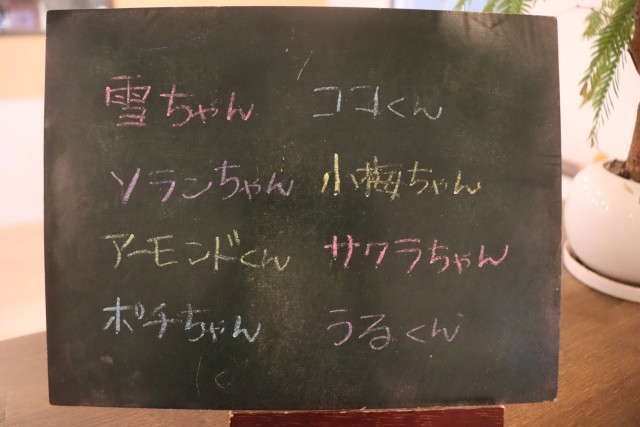 雪ちゃん ココくん
ソランちゃん 小梅ちゃん
アーモンドくん サクラちゃん
ポチちゃん うるくん